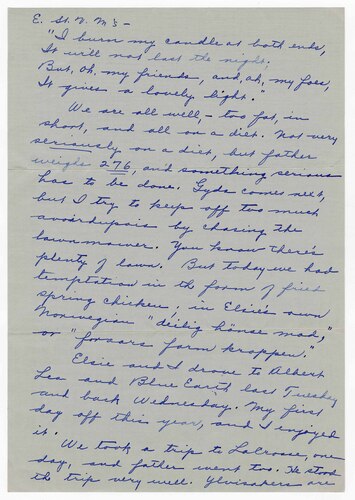 E. St. V. M's -
"I burn my candle at both ends,
It will not last the night.
But, oh, my friends, and, ah, my foes,
It gives a lovely light."
We are all well, - too fat, in
short, and all on a diet. Not very
seriously on a diet, but father
weighs 276, and something serious
has to be done. Gyda comes next,
but I try to keep off too much
avoirdupois by chasing the
lawnmower. You know there's
plenty of lawn. But today we had
temptation in the form of fried
spring chicken; in Elsie's own
Norwegian "deilig hönse mad,"
or "forsars farm kroppen."
Elsie and I drove to Albert
Lea and Blue Earth last Tuesday
and back Wednesday. My first
day off this year, and I enjoyed
it.
We took a trip to LaCrosse, one
day, and father went too. He stood
the trip very well. Ylvisakers are